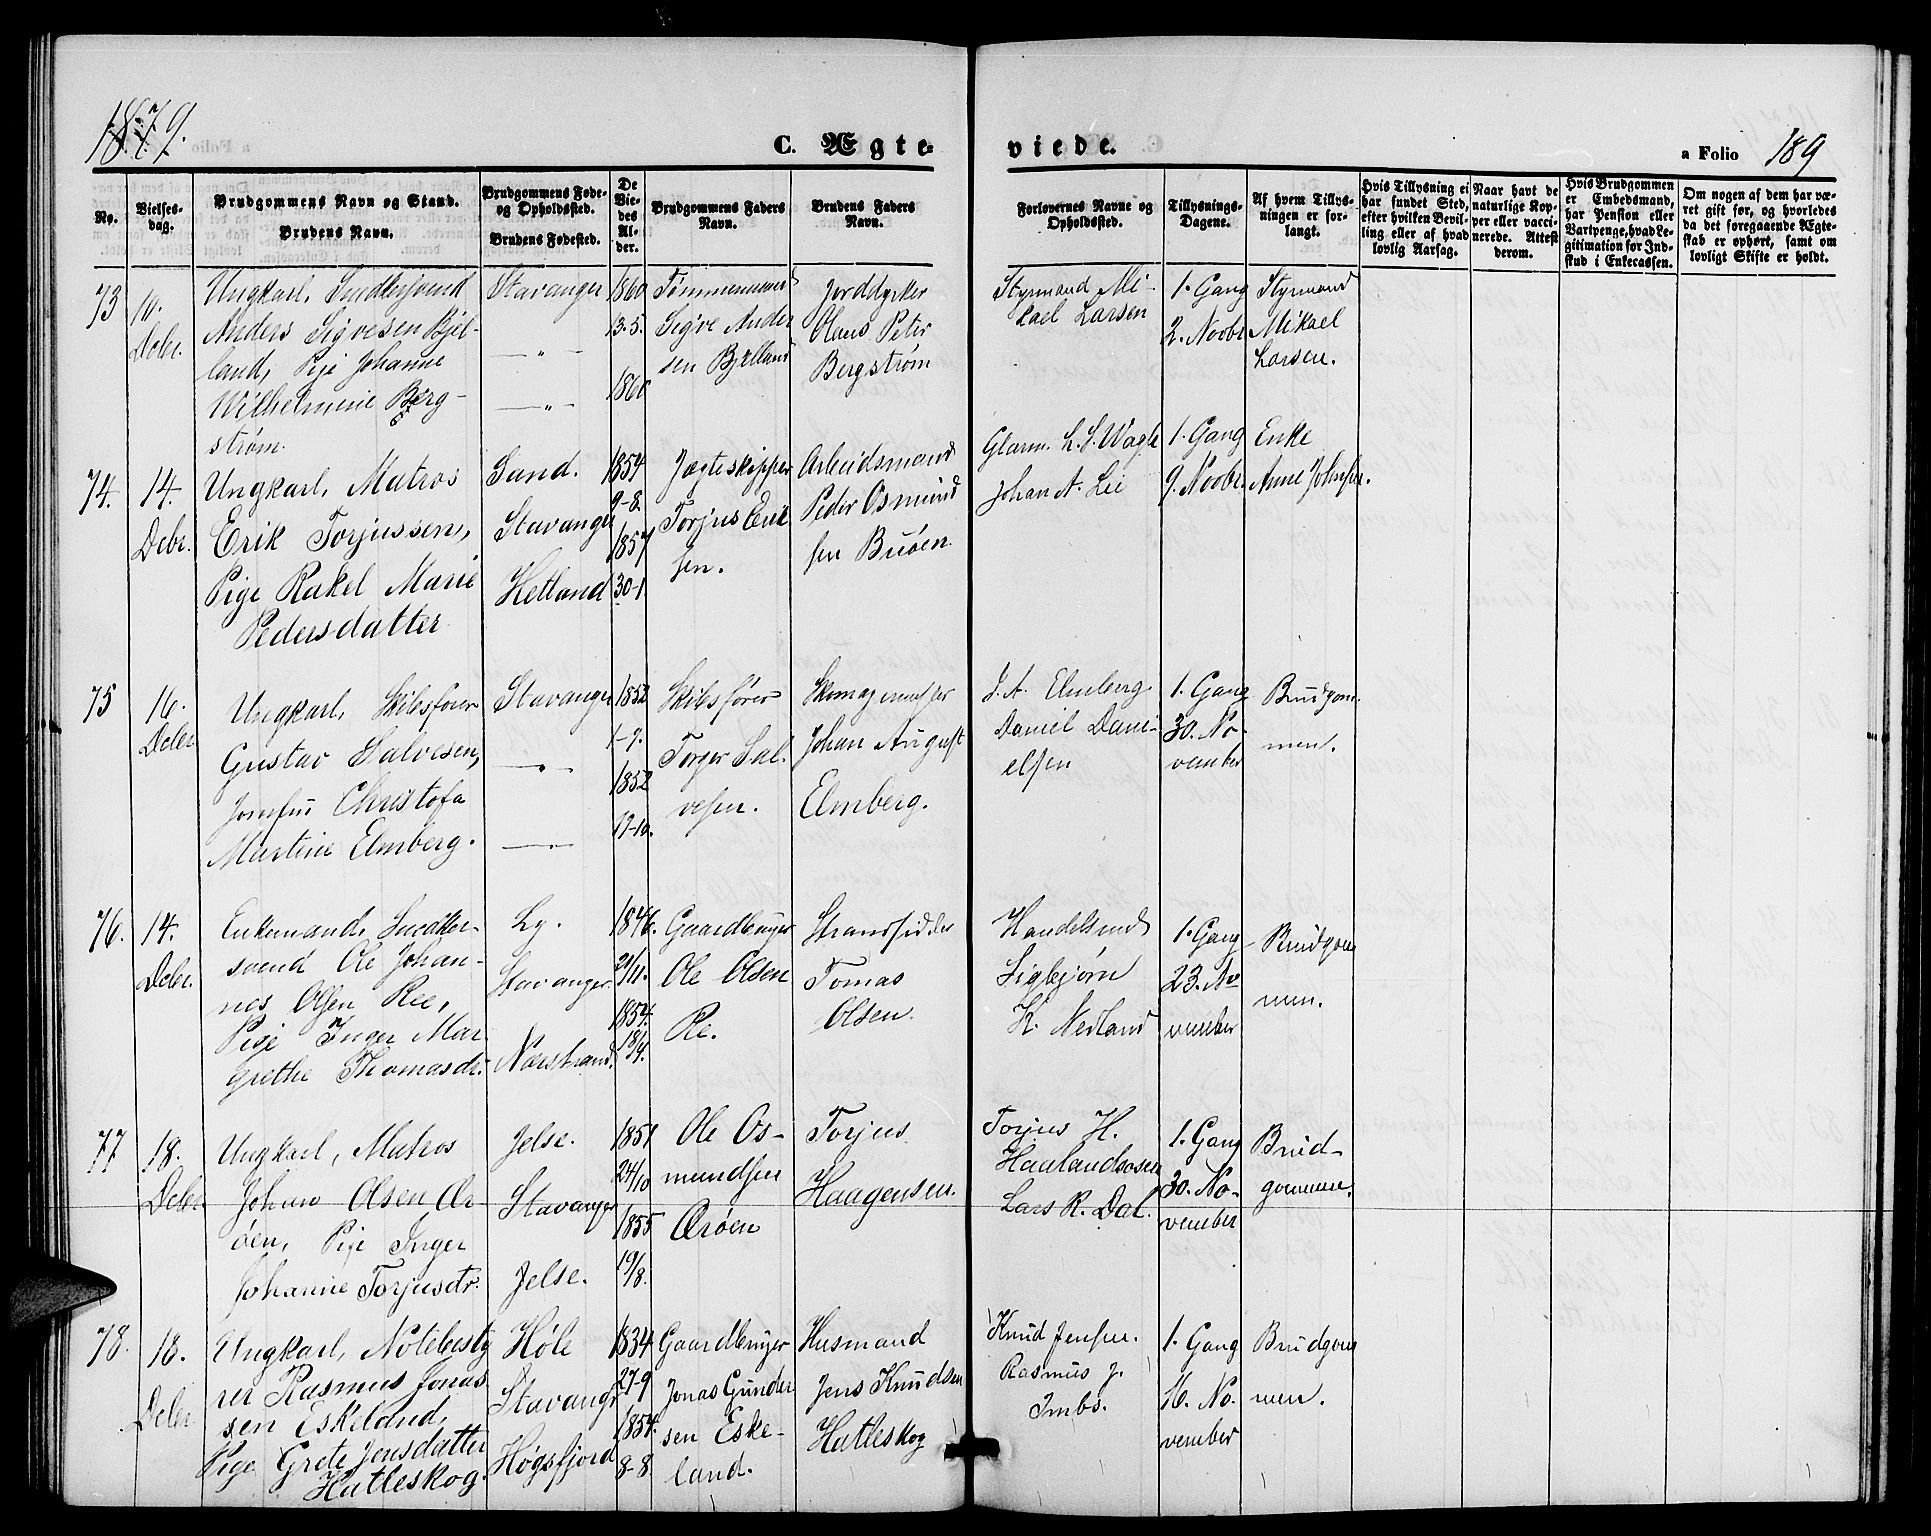 1879.
C. Ægte- viede.
a Folio 189
No.
Vielses-
dag.
Brudgommens Navn og Stand.
Brudens Navn.
Brudgommens Føde-
og Opholdssted.
Brudens Fødested.
De
Vie-
des
Al-
der.
Brudgommens Faders
Navn.
Brudens Faders
Navn.
Forlovernes Navne og
Opholdssted.
Tillysnings-
Dagene.
Af hvem Tillys-
ningen er for-
langt.
Hvis Tillysning ei
har fundet Sted,
efter hvilken Bevil-
ling eller af hvad
lovlig Aarsag.
Naar havt de
naturlige Kop-
per eller vacci-
nerede. Attest
derom.
Hvis Brudgommen
er Embedsmand,
har Pension eller
Vartpenge, hvad Le-
gitimation for Ind-
skud i Enkecassen.
Om nogen af dem har væ-
ret gift før, og hvorledes
da det foregaaende Ægte-
skab er ophørt, samt om
lovligt Skifte er holdt.
73
10.
Debr.
Ungkarl, Snedkersvend
Anders Sigvesen Bjel-
land, Pige Johanne
Wilhelmine Berg-
strøm.
Stavanger
— " —
— " —
1860
13-5.
1860
Tømmermand
Sigve Ander
sen Bjelland
Jorddyrker
Olaus Peter
Bergstrøm
Styrmand Mi-
kael Larsen
1. Gang
2. Novbr.
Styrmand
Mikael
Larsen.
74.
14.
Debr.
Ungkarl, Matros
Erik Torjussen,
Pige Rakel Marie
Pedersdatter
Sand.
Stavanger
Hetland
1854
9-8.
1857
30-1
Jægteskipper
Torjus Erik
sen.
Arbeidsmand
Peder Osmund
sen Buøen.
Glarm. L. S. Wagle
Johan A. Lie
1. Gang
9. Novbr.
Enke
Anne Johnsen.
75
16.
Debr
Ungkarl, Skibsfører
Gustav Salvesen,
Jomfru Christofa
Martine Elmberg.
Stavanger
— " —
— " —
1852
1-9.
1852
17-10.
Skibsfører
Torger Sal-
vesen.
Skomagermester
Johan August
Elmberg.
J. A. Elmberg
Daniel Dani-
elsen
1. Gang
30. No-
vember
Brudgom-
men.
76.
14.
Debr.
Enkemand, Snedker-
svend Ole Johan-
nes Olsen Ree,
Pige Inger Mar
grethe Thomasdr.
Ly.
Stavanger.
Nærstrand.
1846.
21/11.
1854.
18/4.
Gaardbruger
Ole Olsen
Re.
Strandsidder
Tomas
Olsen.
Handelsmd
Sigbjørn
K. Nedland
1. Gang
23. No
vember
Brudgom
men.
77
18.
Debr
Ungkarl, Matros
Johan Olsen Ær-
øen, Pige Inger
Johanne Torjusdr.
Jelse.
Stavanger
Jelse.
1851
24/10
1855
19/8.
Ole Os-
mundsen
Ærøen
Torjus
Haagensen.
Torjus H.
Haalandsosen
Lars R. Dal.
1. Gang
30. No-
vember
Brud-
gommen.
78.
18.
Debr
Ungkarl, Notebesty
rer Rasmus Jonas
sen Eskeland,
Pige Grete Jensdatter
Hatleskog.
Høle
Stavangr
Høgsfjord
1834
27-9
1854.
8-8.
Gaardbruger
Jonas Gunder
sen Eske-
land.
Husmand
Jens Knudsen
Hatleskog
Knud Jensen.
Rasmus J.
Imbs.
1. Gang
16. No-
vember
Brudgom
men.